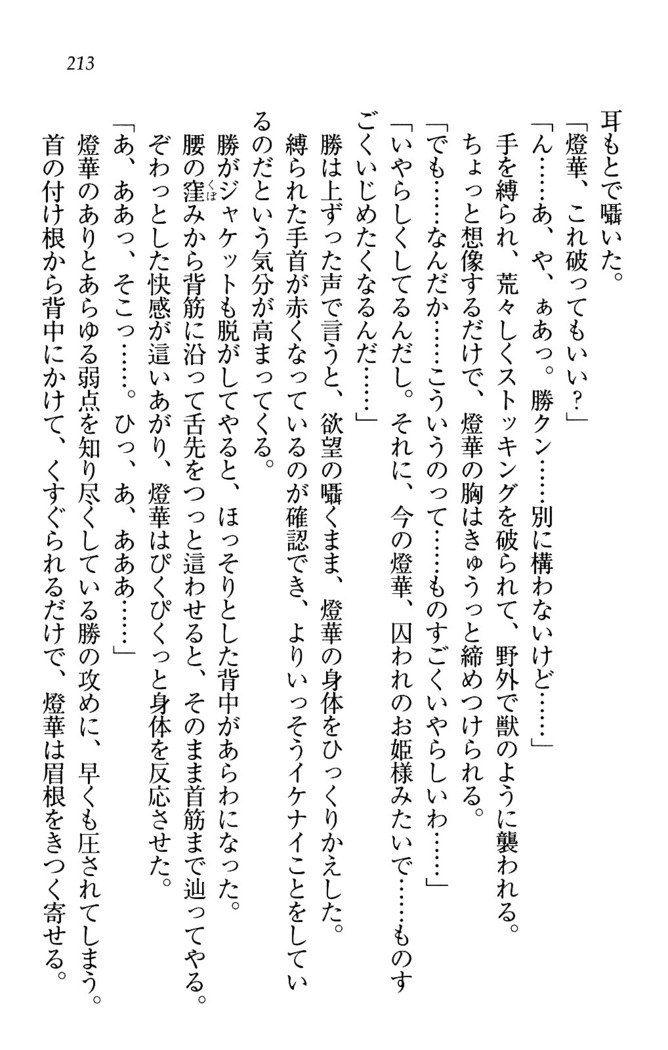 213
耳もとで囁いた。
「燈華、これ破ってもいい?」
「ん……あ、や、ぁあっ。勝クン……別に構わないけど……」
手を縛られ、荒々しくストッキングを破られて、野外で獣のように襲われる。
ちょっと想像するだけで、燈華の胸はきゅうっと締めつけられる。
「でも……なんだか……こういうのって……ものすごくいやらしいわ……」
「いやらしくしてるんだし。それに、今の燈華、囚われのお姫様みたいで……ものす
ごくいじめたくなるんだ……」
勝は上ずった声で言うと、欲望の囁くまま、燈華の身体をひっくりかえした。
縛られた手首が赤くなっているのが確認でき、よりいっそうイケナイことをしてい
るのだという気分が高まってくる。
勝がジャケットも脱がしてやると、ほっそりとした背中があらわになった。
腰の窪くぼみから背筋に沿って舌先をつっと這わせると、そのまま首筋まで辿ってやる。
ぞわっとした快感が這いあがり、燈華はぴくぴくっと身体を反応させた。
「あ、ああっ、そこっ……。ひっ、あ、あああ……」
燈華のありとあらゆる弱点を知り尽くしている勝の攻めに、早くも圧されてしまう。
首の付け根から背中にかけて、くすぐられるだけで、燈華は眉根をきつく寄せる。